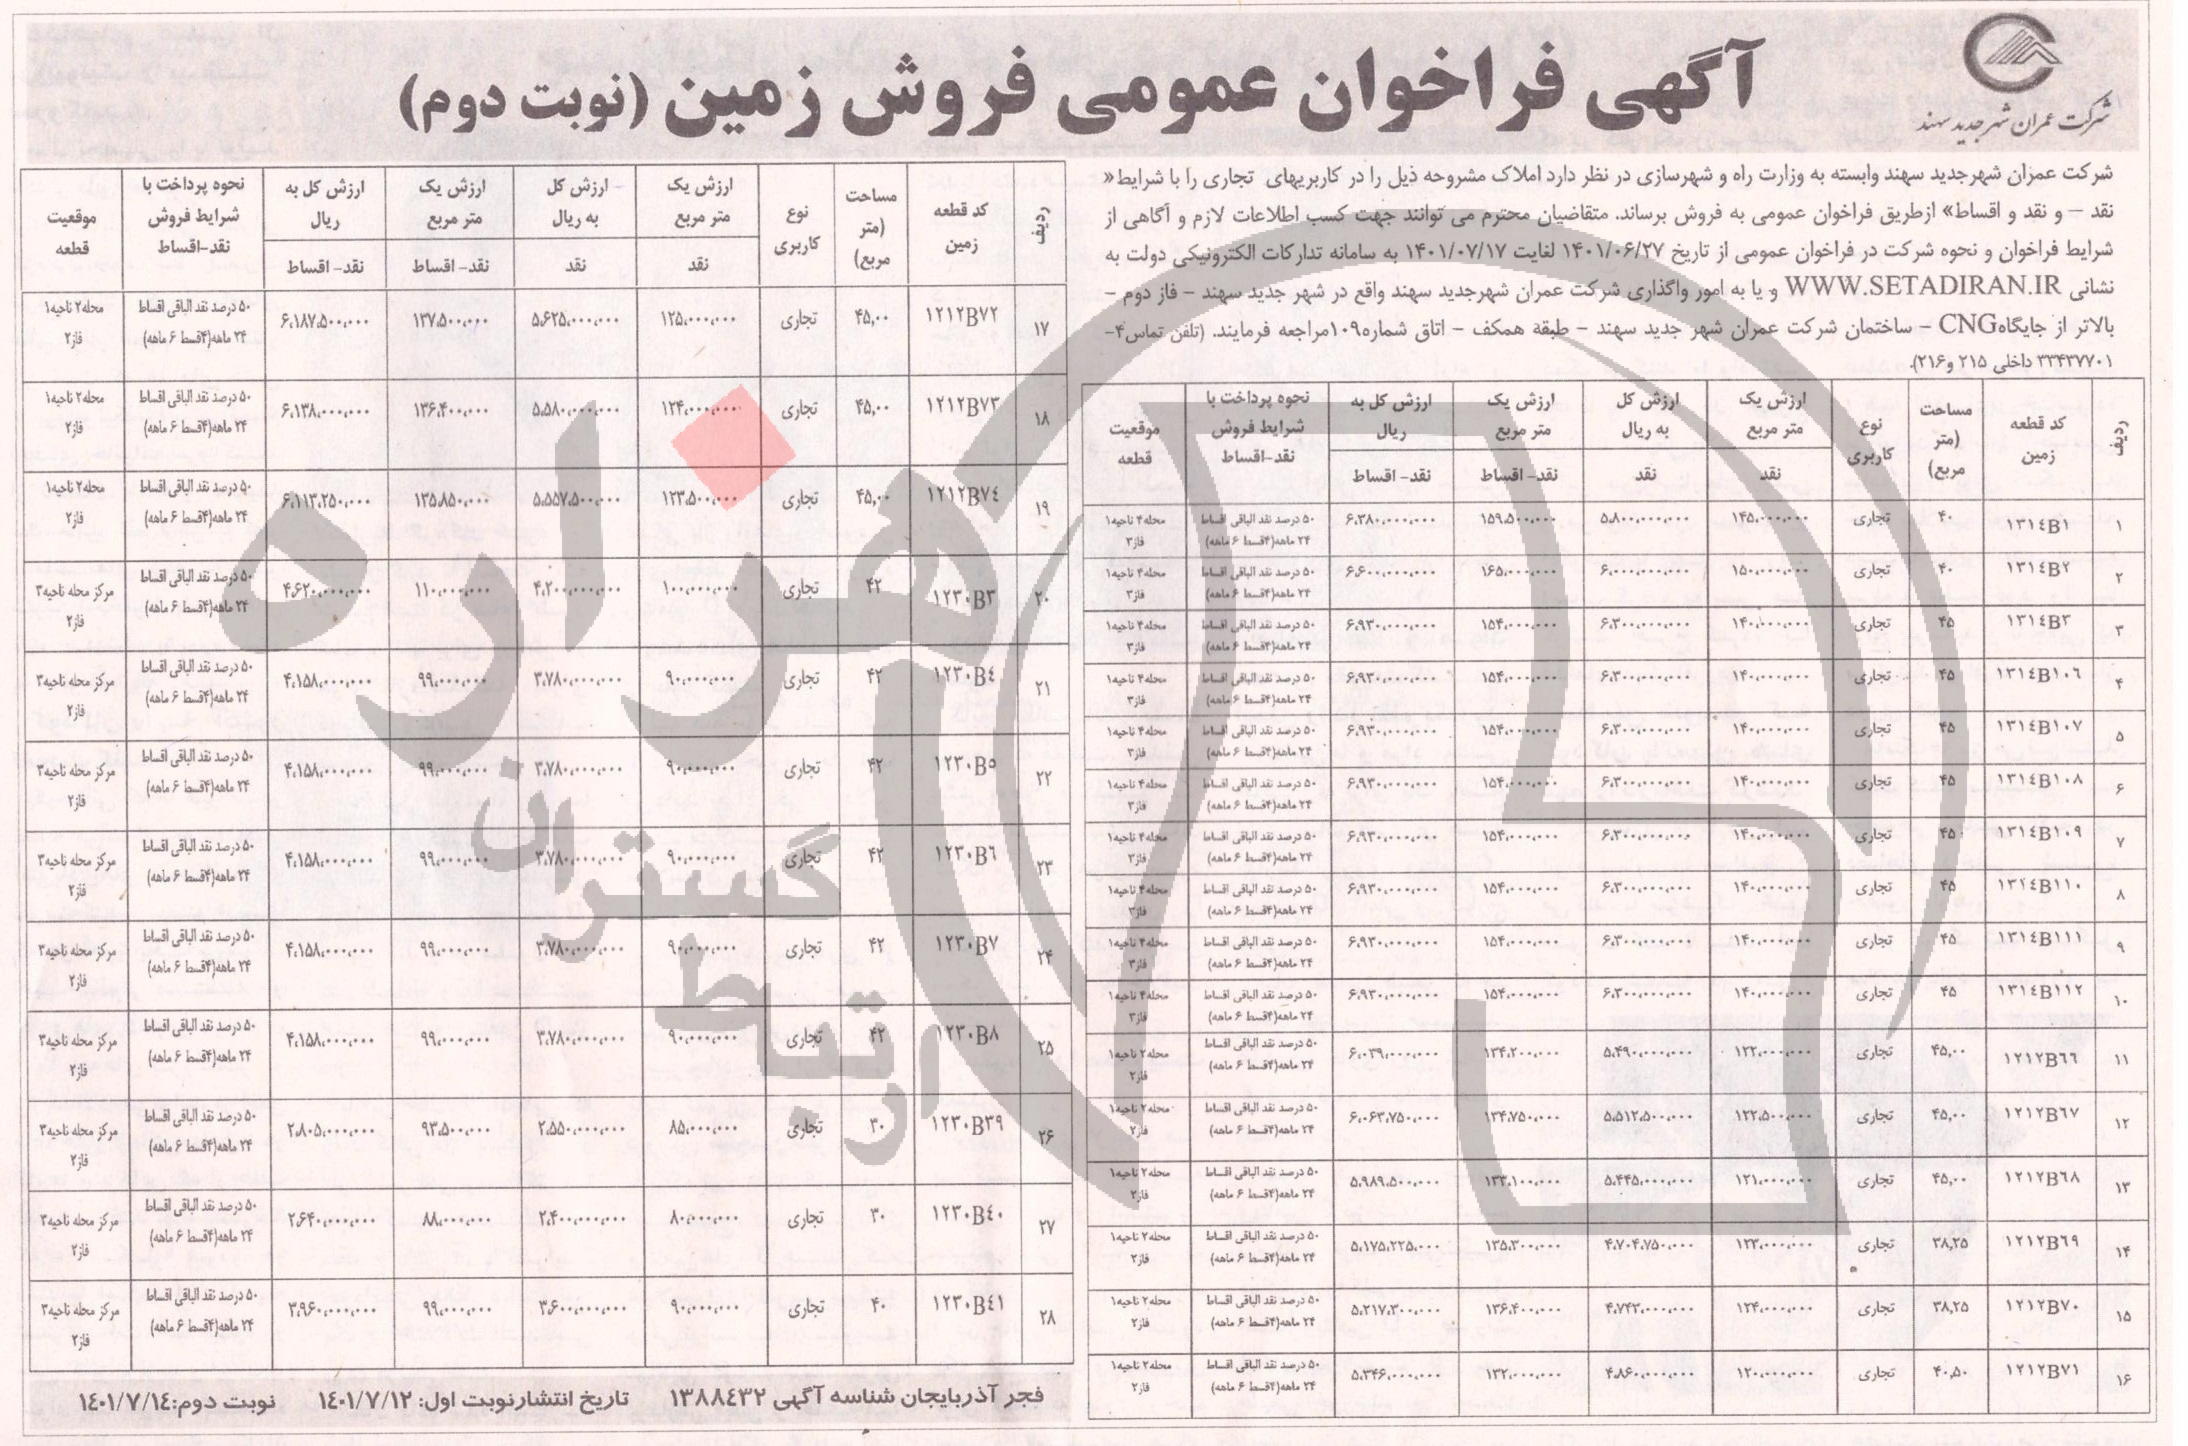 شرکت عمران شهر جدید سهند
آگهی فراخوان عمومی فروش زمین (نوبت دوم)
شرکت عمران شهرجدید سهند وابسته به وزارت راه و شهرسازی در نظر دارد املاک مشروحه ذیل را در کاربریهای تجاری را با شرایط«
نقد – و نقد و اقساط» ازطریق فراخوان عمومی به فروش برساند. متقاضیان محترم می توانند جهت کسب اطلاعات لازم و آگاهی از
شرایط فراخوان و نحوه شرکت در فراخوان عمومی از تاریخ ۱۴۰۱/۰۶/۲۷ لغایت ۱۴۰۱/۰۷/۱۷ به سامانه تدارکات الکترونیکی دولت به
نشانی WWW.SETADIRAN.IR و یا به امور واگذاری شرکت عمران شهرجدید سهند واقع در شهر جدید سهند – فاز دوم –
بالاتر از جایگاه CNG – ساختمان شرکت عمران شهر جدید سهند – طبقه همکف – اتاق شماره۱۰۹مراجعه فرمایند. (تلفن تماس۴–
۳۳۴۳۷۷۰۱ داخلی ۲۱۵ و۲۱۶).
ردیف کد قطعه زمین مساحت (متر مربع) نوع کاربری ارزش یک متر مربع نقد ارزش کل به ریال نقد ارزش یک متر مربع نقد- اقساط ارزش کل به ریال نقد- اقساط نحوه پرداخت با شرایط فروش نقد-اقساط موقعیت قطعه
۱ ۱۳۱٤B۱ ۴۰ تجاری ۱۴۵،۰۰۰،۰۰۰ ۵،۸۰۰،۰۰۰،۰۰۰ ۱۵۹،۵۰۰،۰۰۰ ۶،۳۸۰،۰۰۰،۰۰۰ ۵۰ درصد نقد الباقی اقساط ۲۴ ماهه(۴قسط ۶ ماهه) محله۴ ناحیه۱ فاز۳
۲ ۱۳۱٤B۲ ۴۰ تجاری ۱۵۰،۰۰۰،۰۰۰ ۶،۰۰۰،۰۰۰،۰۰۰ ۱۶۵،۰۰۰،۰۰۰ ۶،۶۰۰،۰۰۰،۰۰۰ ۵۰ درصد نقد الباقی اقساط ۲۴ ماهه(۴قسط ۶ ماهه) محله۴ ناحیه۱ فاز۳
۳ ۱۳۱٤B۳ ۴۵ تجاری ۱۴۰،۰۰۰،۰۰۰ ۶،۳۰۰،۰۰۰،۰۰۰ ۱۵۴،۰۰۰،۰۰۰ ۶،۹۳۰،۰۰۰،۰۰۰ ۵۰ درصد نقد الباقی اقساط ۲۴ ماهه(۴قسط ۶ ماهه) محله۴ ناحیه۱ فاز۳
۴ ۱۳۱٤B۱۰۶ ۴۵ تجاری ۱۴۰،۰۰۰،۰۰۰ ۶،۳۰۰،۰۰۰،۰۰۰ ۱۵۴،۰۰۰،۰۰۰ ۶،۹۳۰،۰۰۰،۰۰۰ ۵۰ درصد نقد الباقی اقساط ۲۴ ماهه(۴قسط ۶ ماهه) محله۴ ناحیه۱ فاز۳
۵ ۱۳۱٤B۱۰۷ ۴۵ تجاری ۱۴۰،۰۰۰،۰۰۰ ۶،۳۰۰،۰۰۰،۰۰۰ ۱۵۴،۰۰۰،۰۰۰ ۶،۹۳۰،۰۰۰،۰۰۰ ۵۰ درصد نقد الباقی اقساط ۲۴ ماهه(۴قسط ۶ ماهه) محله۴ ناحیه۱ فاز۳
۶ ۱۳۱٤B۱۰۸ ۴۵ تجاری ۱۴۰،۰۰۰،۰۰۰ ۶،۳۰۰،۰۰۰،۰۰۰ ۱۵۴،۰۰۰،۰۰۰ ۶،۹۳۰،۰۰۰،۰۰۰ ۵۰ درصد نقد الباقی اقساط ۲۴ ماهه(۴قسط ۶ ماهه) محله۴ ناحیه۱ فاز۳
۷ ۱۳۱٤B۱۰۹ ۴۵ تجاری ۱۴۰،۰۰۰،۰۰۰ ۶،۳۰۰،۰۰۰،۰۰۰ ۱۵۴،۰۰۰،۰۰۰ ۶،۹۳۰،۰۰۰،۰۰۰ ۵۰ درصد نقد الباقی اقساط ۲۴ ماهه(۴قسط ۶ ماهه) محله۴ ناحیه۱ فاز۳
۸ ۱۳۱٤B۱۱۰ ۴۵ تجاری ۱۴۰،۰۰۰،۰۰۰ ۶،۳۰۰،۰۰۰،۰۰۰ ۱۵۴،۰۰۰،۰۰۰ ۶،۹۳۰،۰۰۰،۰۰۰ ۵۰ درصد نقد الباقی اقساط ۲۴ ماهه(۴قسط ۶ ماهه) محله۴ ناحیه۱ فاز۳
۹ ۱۳۱٤B۱۱۱ ۴۵ تجاری ۱۴۰،۰۰۰،۰۰۰ ۶،۳۰۰،۰۰۰،۰۰۰ ۱۵۴،۰۰۰،۰۰۰ ۶،۹۳۰،۰۰۰،۰۰۰ ۵۰ درصد نقد الباقی اقساط ۲۴ ماهه(۴قسط ۶ ماهه) محله۴ ناحیه۱ فاز۳
۱۰ ۱۳۱٤B۱۱۲ ۴۵ تجاری ۱۴۰،۰۰۰،۰۰۰ ۶،۳۰۰،۰۰۰،۰۰۰ ۱۵۴،۰۰۰،۰۰۰ ۶،۹۳۰،۰۰۰،۰۰۰ ۵۰ درصد نقد الباقی اقساط ۲۴ ماهه(۴قسط ۶ ماهه) محله۴ ناحیه۱ فاز۳
۱۱ ۱۲۱۲B٦٦ ۴۵,۰۰ تجاری ۱۲۲،۰۰۰،۰۰۰ ۵،۴۹۰،۰۰۰،۰۰۰ ۱۳۴،۲۰۰،۰۰۰ ۶،۰۳۹،۰۰۰،۰۰۰ ۵۰ درصد نقد الباقی اقساط ۲۴ ماهه(۴قسط ۶ ماهه) محله۲ ناحیه۱ فاز۲
۱۲ ۱۲۱۲B٦۷ ۴۵,۰۰ تجاری ۱۲۲،۵۰۰،۰۰۰ ۵،۵۱۲،۵۰۰،۰۰۰ ۱۳۴،۷۵۰،۰۰۰ ۶،۰۶۳،۷۵۰،۰۰۰ ۵۰ درصد نقد الباقی اقساط ۲۴ ماهه(۴قسط ۶ ماهه) محله۲ ناحیه۱ فاز۲
۱۳ ۱۲۱۲B٦۸ ۴۵,۰۰ تجاری ۱۲۱،۰۰۰،۰۰۰ ۵،۴۴۵،۰۰۰،۰۰۰ ۱۳۳،۱۰۰،۰۰۰ ۵،۹۸۹،۵۰۰،۰۰۰ ۵۰ درصد نقد الباقی اقساط ۲۴ ماهه(۴قسط ۶ ماهه) محله۲ ناحیه۱ فاز۲
۱۴ ۱۲۱۲B٦۹ ۳۸,۲۵ تجاری ۱۲۳،۰۰۰،۰۰۰ ۴،۷۰۴،۷۵۰،۰۰۰ ۱۳۵،۳۰۰،۰۰۰ ۵،۱۷۵،۲۲۵،۰۰۰ ۵۰ درصد نقد الباقی اقساط ۲۴ ماهه(۴قسط ۶ ماهه) محله۲ ناحیه۱ فاز۲
۱۵ ۱۲۱۲B۷۰ ۳۸,۲۵ تجاری ۱۲۴،۰۰۰،۰۰۰ ۴،۷۴۳،۰۰۰،۰۰۰ ۱۳۶،۴۰۰،۰۰۰ ۵،۲۱۷،۳۰۰،۰۰۰ ۵۰ درصد نقد الباقی اقساط ۲۴ ماهه(۴قسط ۶ ماهه) محله۲ ناحیه۱ فاز۲
۱۶ ۱۲۱۲B۷۱ ۴۰,۵۰ تجاری ۱۲۰،۰۰۰،۰۰۰ ۴،۸۶۰،۰۰۰،۰۰۰ ۱۳۲،۰۰۰،۰۰۰ ۵،۳۴۶،۰۰۰،۰۰۰ ۵۰ درصد نقد الباقی اقساط ۲۴ ماهه(۴قسط ۶ ماهه) محله۲ ناحیه۱ فاز۲
ردیف کد قطعه زمین مساحت (متر مربع) نوع کاربری ارزش یک متر مربع نقد ارزش کل به ریال نقد ارزش یک متر مربع نقد- اقساط ارزش کل به ریال نقد- اقساط نحوه پرداخت با شرایط فروش نقد-اقساط موقعیت قطعه
۱۷ ۱۲۱۲B۷۲ ۴۵,۰۰ تجاری ۱۲۵،۰۰۰،۰۰۰ ۵،۶۲۵،۰۰۰،۰۰۰ ۱۳۷،۵۰۰،۰۰۰ ۶،۱۸۷،۵۰۰،۰۰۰ ۵۰ درصد نقد الباقی اقساط ۲۴ ماهه(۴قسط ۶ ماهه) محله۲ ناحیه۱ فاز۲
۱۸ ۱۲۱۲B۷۳ ۴۵,۰۰ تجاری ۱۲۴،۰۰۰،۰۰۰ ۵،۵۸۰،۰۰۰،۰۰۰ ۱۳۶،۴۰۰،۰۰۰ ۶،۱۳۸،۰۰۰،۰۰۰ ۵۰ درصد نقد الباقی اقساط ۲۴ ماهه(۴قسط ۶ ماهه) محله۲ ناحیه۱ فاز۲
۱۹ ۱۲۱۲B۷٤ ۴۵,۰۰ تجاری ۱۲۳،۵۰۰،۰۰۰ ۵،۵۵۷،۵۰۰،۰۰۰ ۱۳۵،۸۵۰،۰۰۰ ۶،۱۱۳،۲۵۰،۰۰۰ ۵۰ درصد نقد الباقی اقساط ۲۴ ماهه(۴قسط ۶ ماهه) محله۲ ناحیه۱ فاز۲
۲۰ ۱۲۳۰B۳ ۴۲ تجاری ۱۰۰،۰۰۰،۰۰۰ ۴،۲۰۰،۰۰۰،۰۰۰ ۱۱۰،۰۰۰،۰۰۰ ۴،۶۲۰،۰۰۰،۰۰۰ ۵۰ درصد نقد الباقی اقساط ۲۴ ماهه(۴قسط ۶ ماهه) مرکز محله ناحیه۳ فاز۲
۲۱ ۱۲۳۰B٤ ۴۲ تجاری ۹۰،۰۰۰،۰۰۰ ۳،۷۸۰،۰۰۰،۰۰۰ ۹۹،۰۰۰،۰۰۰ ۴،۱۵۸،۰۰۰،۰۰۰ ۵۰ درصد نقد الباقی اقساط ۲۴ ماهه(۴قسط ۶ ماهه) مرکز محله ناحیه۳ فاز۲
۲۲ ۱۲۳۰B۵ ۴۲ تجاری ۹۰،۰۰۰،۰۰۰ ۳،۷۸۰،۰۰۰،۰۰۰ ۹۹،۰۰۰،۰۰۰ ۴،۱۵۸،۰۰۰،۰۰۰ ۵۰ درصد نقد الباقی اقساط ۲۴ ماهه(۴قسط ۶ ماهه) مرکز محله ناحیه۳ فاز۲
۲۳ ۱۲۳۰B٦ ۴۲ تجاری ۹۰،۰۰۰،۰۰۰ ۳،۷۸۰،۰۰۰،۰۰۰ ۹۹،۰۰۰،۰۰۰ ۴،۱۵۸،۰۰۰،۰۰۰ ۵۰ درصد نقد الباقی اقساط ۲۴ ماهه(۴قسط ۶ ماهه) مرکز محله ناحیه۳ فاز۲
۲۴ ۱۲۳۰B۷ ۴۲ تجاری ۹۰،۰۰۰،۰۰۰ ۳،۷۸۰،۰۰۰،۰۰۰ ۹۹،۰۰۰،۰۰۰ ۴،۱۵۸،۰۰۰،۰۰۰ ۵۰ درصد نقد الباقی اقساط ۲۴ ماهه(۴قسط ۶ ماهه) مرکز محله ناحیه۳ فاز۲
۲۵ ۱۲۳۰B۸ ۴۲ تجاری ۹۰،۰۰۰،۰۰۰ ۳،۷۸۰،۰۰۰،۰۰۰ ۹۹،۰۰۰،۰۰۰ ۴،۱۵۸،۰۰۰،۰۰۰ ۵۰ درصد نقد الباقی اقساط ۲۴ ماهه(۴قسط ۶ ماهه) مرکز محله ناحیه۳ فاز۲
۲۶ ۱۲۳۰B۳۹ ۳۰ تجاری ۸۵،۰۰۰،۰۰۰ ۲،۵۵۰،۰۰۰،۰۰۰ ۹۳،۵۰۰،۰۰۰ ۲،۸۰۵،۰۰۰،۰۰۰ ۵۰ درصد نقد الباقی اقساط ۲۴ ماهه(۴قسط ۶ ماهه) مرکز محله ناحیه۳ فاز۲
۲۷ ۱۲۳۰B٤۰ ۳۰ تجاری ۸۰،۰۰۰،۰۰۰ ۲،۴۰۰،۰۰۰،۰۰۰ ۸۸،۰۰۰،۰۰۰ ۲،۶۴۰،۰۰۰،۰۰۰ ۵۰ درصد نقد الباقی اقساط ۲۴ ماهه(۴قسط ۶ ماهه) مرکز محله ناحیه۳ فاز۲
۲۸ ۱۲۳۰B٤۱ ۴۰ تجاری ۹۰،۰۰۰،۰۰۰ ۳،۶۰۰،۰۰۰،۰۰۰ ۹۹،۰۰۰،۰۰۰ ۳،۹۶۰،۰۰۰،۰۰۰ ۵۰ درصد نقد الباقی اقساط ۲۴ ماهه(۴قسط ۶ ماهه) مرکز محله ناحیه۳ فاز۲
فجر آذربایجان شناسه آگهی ۱۳۸۸٤۳۲ تاریخ انتشارنوبت اول: ۱٤۰۱/۷/۱۲ نوبت دوم:۱٤۰۱/۷/۱٤
هزاره
ارتباط گستران